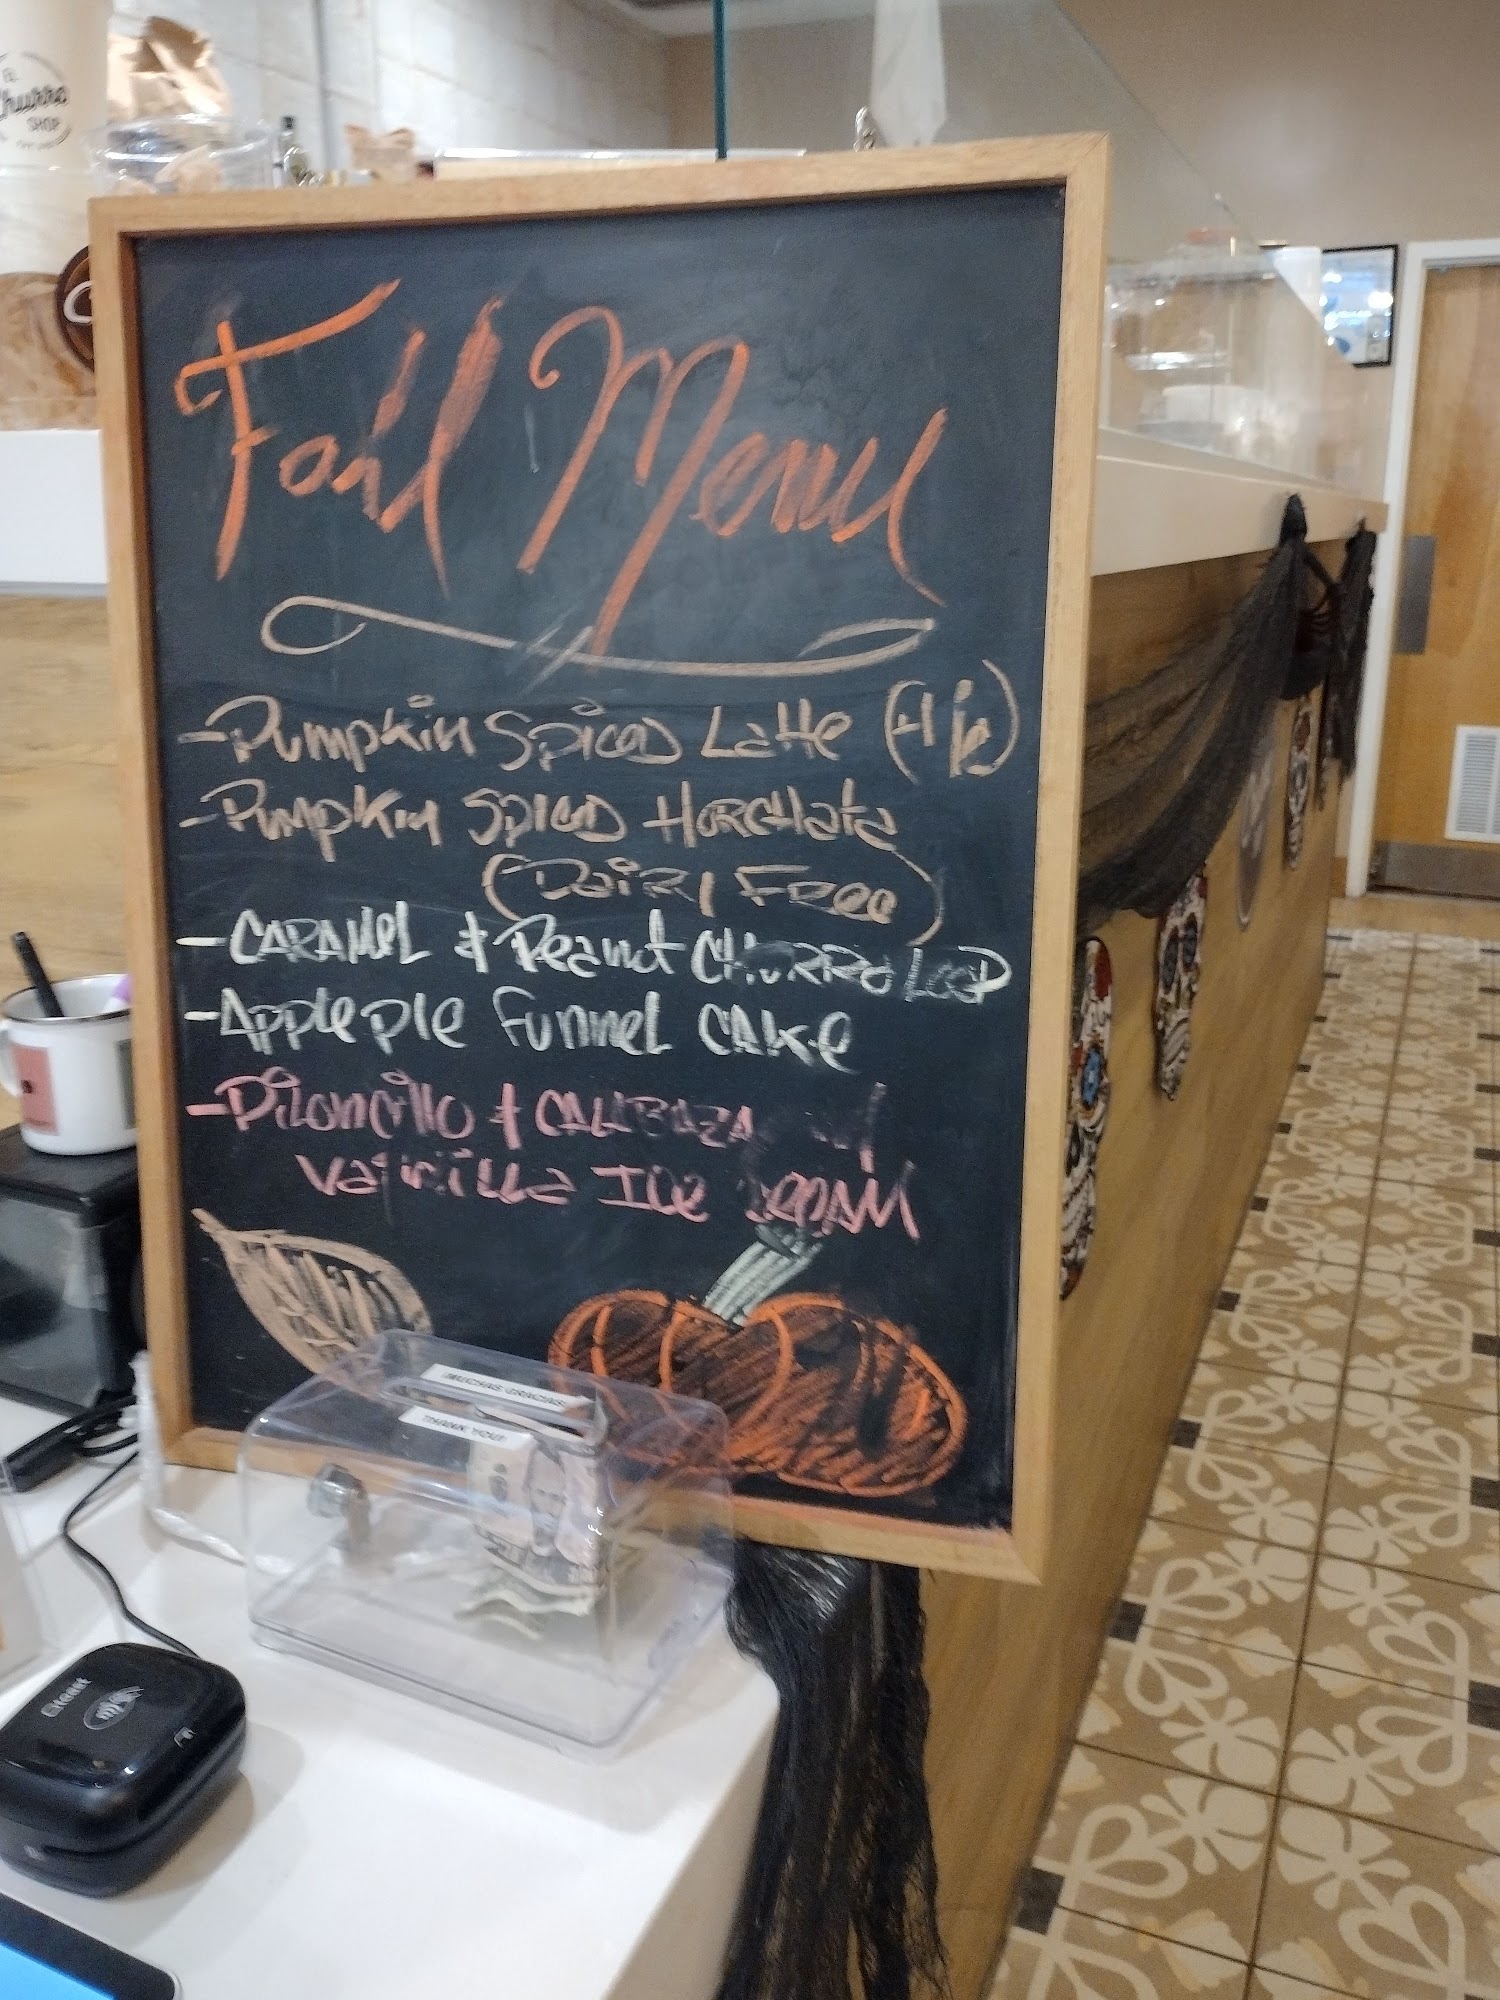 El
Churro
SHOP
Fall Menu
- Pumpkin Spiced Latte (H/ic)
- Pumpkin Spiced Horchata
(Dairy Free)
- CARAMEL & Peanut CHURRO LOOP
- Apple pie funnel CAKe
- Piloncillo & CALABAZA w/
Vanilla Ice Cream
¡MUCHAS GRACIAS!
THANK YOU!
toast